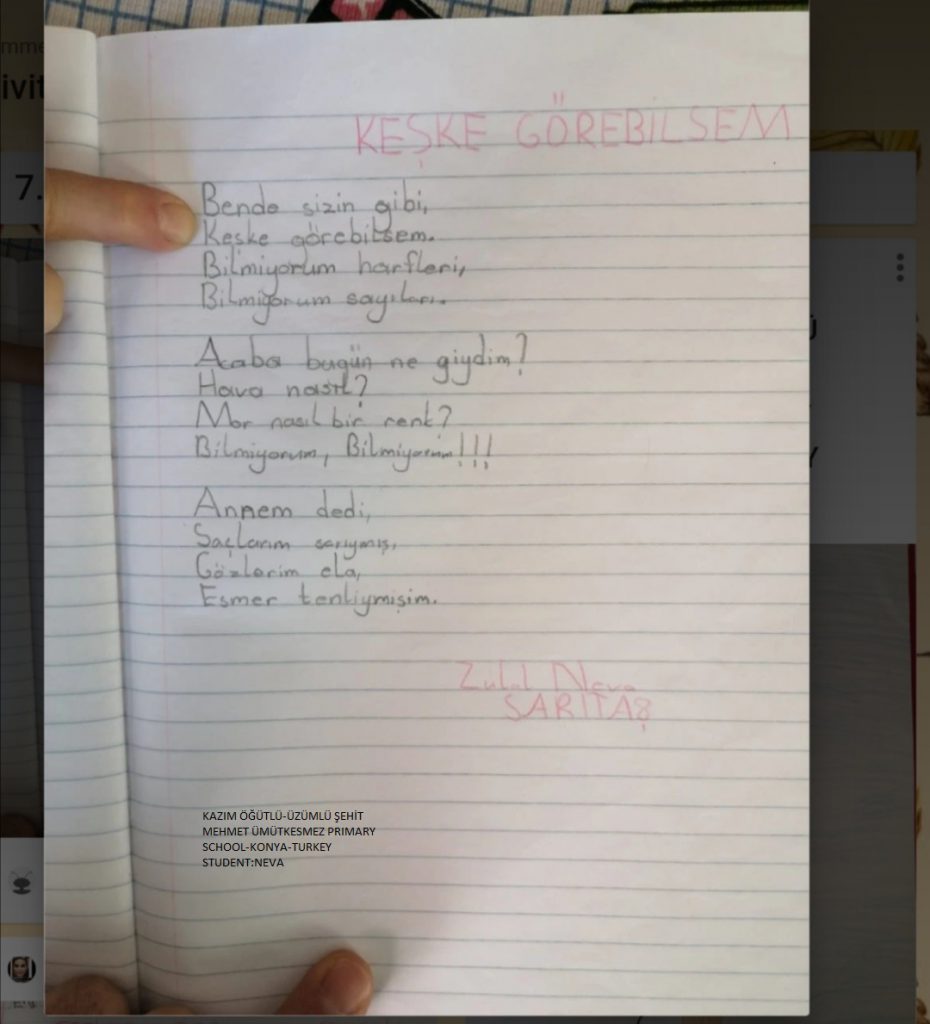 KEŞKE GÖREBİLSEM
Bende sizin gibi,
Keşke görebilsem.
Bilmiyorum harfleri,
Bilmiyorum sayıları.
Acaba bugün ne giydim?
Hava nasıl?
Mor nasıl bir renk?
Bilmiyorum, Bilmiyorum!!!
Annem dedi,
Saçlarım sarıymış,
Gözlerim ela,
Esmer tenliymişim.
Zülal Neva
SARITAŞ
KAZIM ÖĞÜTLÜ-ÜZÜMLÜ ŞEHİT
MEHMET ÜMÜTKESMEZ PRIMARY
SCHOOL-KONYA-TURKEY
STUDENT:NEVA
7.